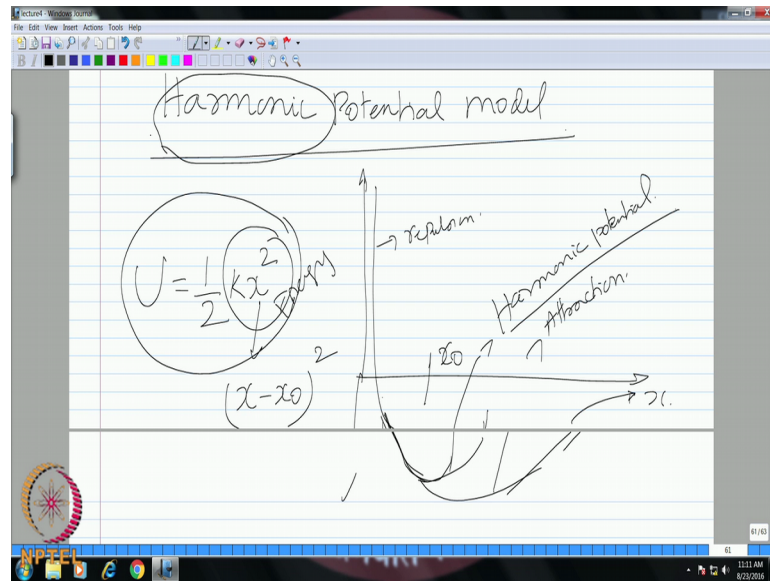 lecture4 - Windows Journal
File Edit View Insert Actions Tools Help
Harmonic Potential model
U = 1/2 Kx²
Energy
(x-x0)²
→ repulsion.
Harmonic potential.
Attraction.
x0
x.
61/63
61
NPTEL
11:11 AM
8/23/2016